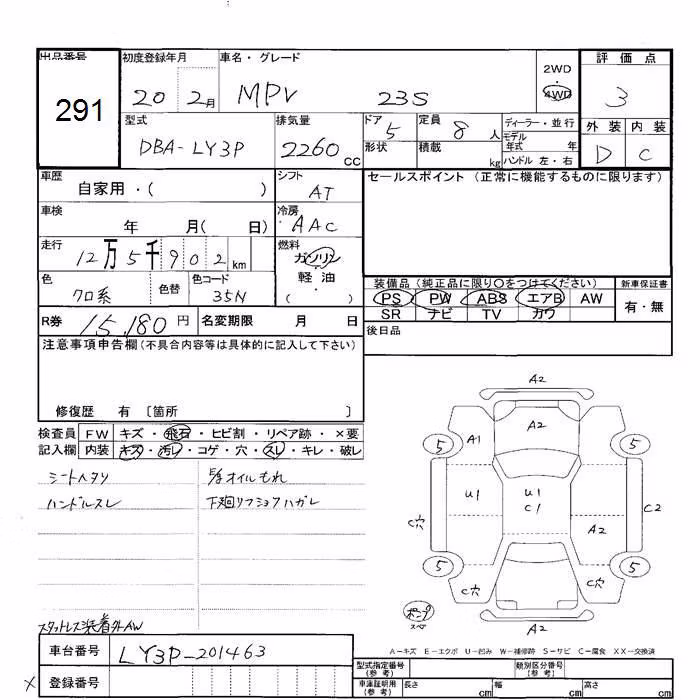 出品番号 初度登録年月 車名・グレード 2WD 評価点
291 20 2月 MPV 23S 4WD 3
型式 排気量 ドア 5 定員 8人 ディーラー・並行 外装 内装
DBA-LY3P 2260cc 形状 積載 kg モデル年式 年 D C
ハンドル 左・右
車歴 自家用・( ) シフト AT セールスポイント (正常に機能するものに限ります)
車検 年 月( 日) 冷房 AAC
走行 12万5千902km 燃料 ガソリン
軽油
( )
色 クロ系 色替 色コード 35N
装備品 (純正品に限り○をつけてください) 新車保証書
PS PW ABS エアB AW 有・無
SR ナビ TV カワ
R券 15,180円 名変期限 月 日 後日品
注意事項申告欄(不具合内容等は具体的に記入して下さい)
修復歴 有 〔箇所 〕
検査員 FW キズ・飛石・ヒビ割・リペア跡・×要
記入欄 内装 キズ・汚レ・コゲ・穴・スレ・キレ・破レ
シートヘタリ オイルもれ
ハンドルスレ 下廻リフショクハガレ
A2
A2
5 A1 5
U1 U1 C1
C穴 A2 C2
5 C穴 C穴 5
A2
スタットレス装着外AW
A-キズ E-エクボ U-凹み W-補修跡 S-サビ C-腐食 XX-交換済
車台番号 LY3P-201463
型式指定番号 (参考) 類別区分番号 (参考)
× 登録番号
車庫証明用 (参考) 長さ cm 幅 cm 高さ cm